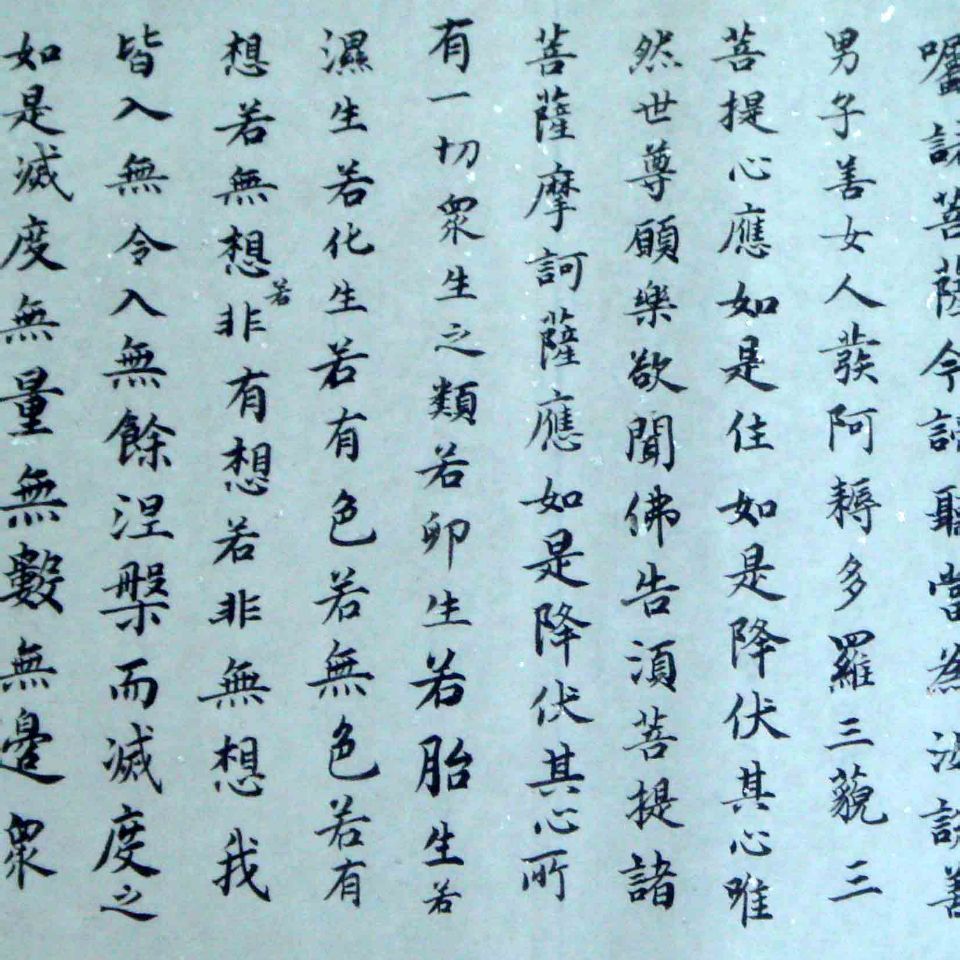 囑諸菩薩今諦聽當為汝說善
男子善女人發阿耨多羅三藐三
菩提心應如是住如是降伏其心唯
然世尊願樂欲聞佛告須菩提諸
菩薩摩訶薩應如是降伏其心所
有一切眾生之類若卵生若胎生若
濕生若化生若有色若無色若有
想若無想若非有想若非無想我
皆入無令入無餘涅槃而滅度之
如是滅度無量無數無邊眾